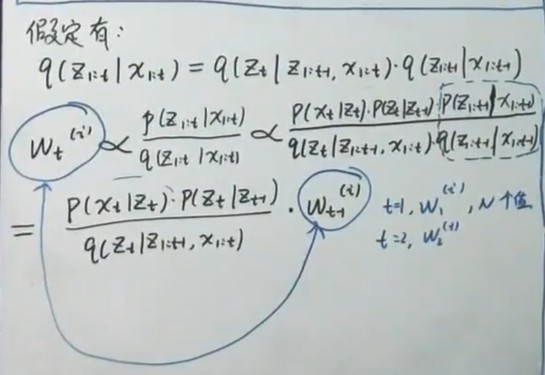 假定有:
q(z₁:t|x₁:t) = q(zt|z₁:t-1, x₁:t)·q(z₁:t-1|x₁:t-1)
wt⁽ⁱ⁾ ∝ p(z₁:t|x₁:t) / q(z₁:t|x₁:t) ∝ p(xt|zt)·p(zt|zt-1)·p(z₁:t-1|x₁:t-1) / q(zt|z₁:t-1, x₁:t)·q(z₁:t-1|x₁:t-1)
= p(xt|zt)·p(zt|zt-1) / q(zt|z₁:t-1, x₁:t) · wt-1⁽ⁱ⁾
t=1, w₁⁽ⁱ⁾, N个值
t=2, w₂⁽ⁱ⁾